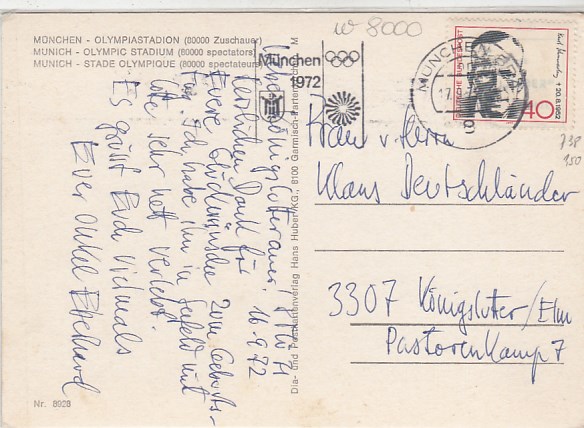 MÜNCHEN - OLYMPIASTADION (80000 Zuschauer)
MUNICH - OLYMPIC STADIUM (80000 spectators)
MUNICH - STADE OLYMPIQUE (80000 spectateurs)
w 8000
München
1972
MÜNCHEN
DEUTSCHE BUNDESPOST
† 20.8.1952
40
738
950
Frau u. Herrn
Klaus Deutschländer
3307 Königslutter/Elm
Pastorenkamp 7
Liebe Königslutteraner!
16.9.72
Herzlichen Dank für
Eure Glückwünsche zum Geburts-
tag. Ich habe ihn in
sehr nett verlebt.
Es grüßt Euch vielmals
Euer Onkel Eberhard
Dia- und Postkartenverlag Hans Huber KG., 8100 Garmisch-Partenkirchen
Nr. 8928